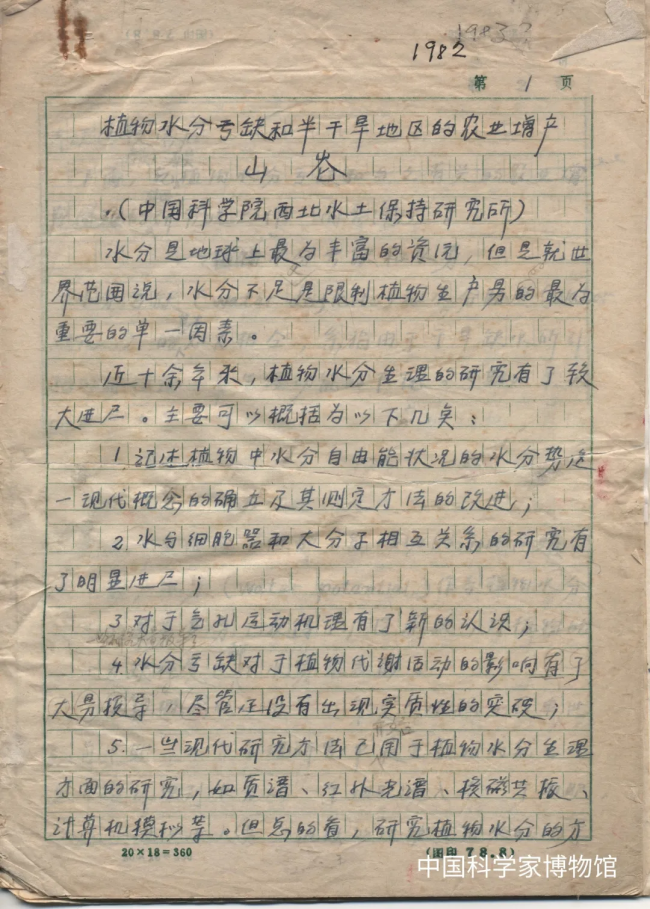 1983?
1982
第 1 页
植物水分亏缺和半干旱地区的农业增产
山 仑
(中国科学院西北水土保持研究所)
水分是地球上最为丰富的资源,但是就世
界范围说,水分不足是限制植物生产力的最为
重要的单一因素。
近十余年来,植物水分生理的研究有了较
大进展。主要可以概括为以下几点:
1.记述植物中水分自由能状况的水分势这
一现代概念的确立及其测定方法的改进;
2.水与细胞器和大分子相互关系的研究有
了明显进展;
3.对于气孔运动机理有了新的认识;
4.水分亏缺对于植物代谢活动的影响有了
大量报导,尽管还没有出现实质性的突破;
5.一些现代研究方法已用于植物水分生理
方面的研究,如质谱、红外光谱、核磁共振、
计算机模拟等。但总的看,研究植物水分的方
20×18=360
(国印 78.8)
中国科学家博物馆